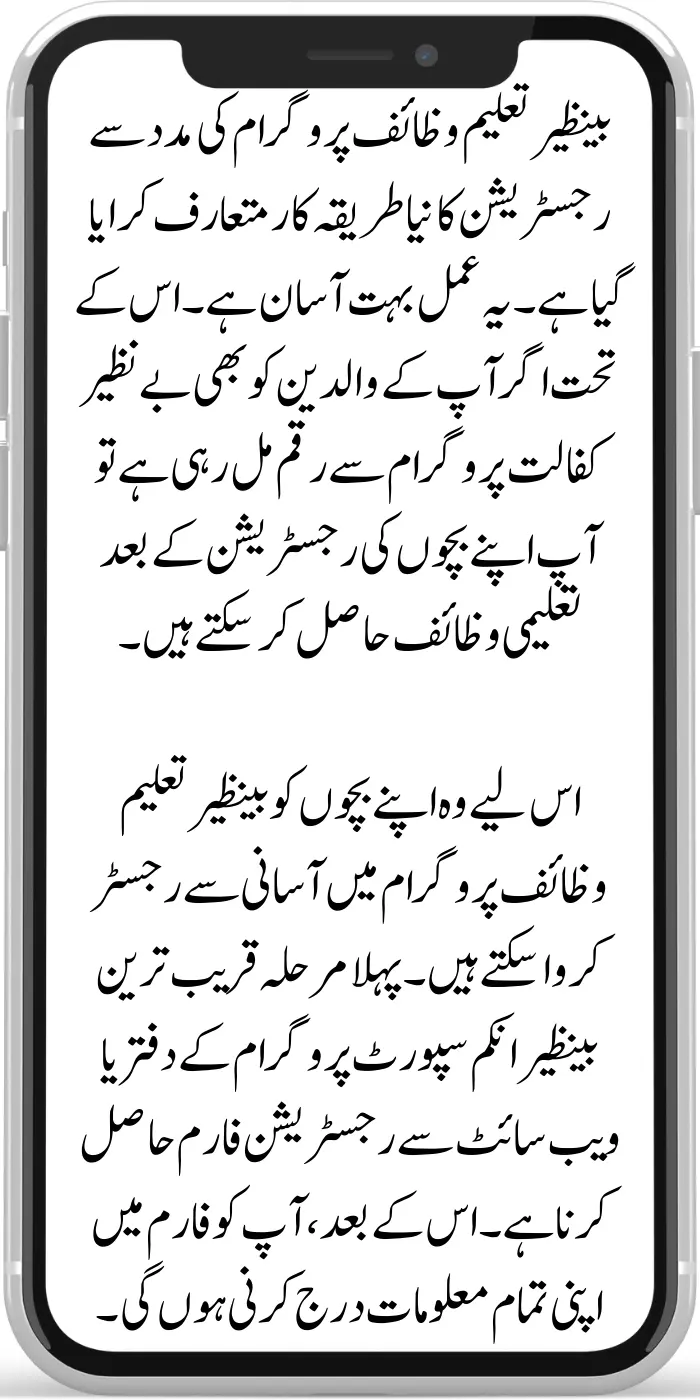 بینظیر تعلیم وظائف پروگرام کی مدد سے
رجسٹریشن کا نیا طریقہ کار متعارف کرایا
گیا ہے۔ یہ عمل بہت آسان ہے۔ اس کے
تحت اگر آپ کے والدین کو بھی بے نظیر
کفالت پروگرام سے رقم مل رہی ہے تو
آپ اپنے بچوں کی رجسٹریشن کے بعد
تعلیمی وظائف حاصل کر سکتے ہیں۔
اس لیے وہ اپنے بچوں کو بینظیر تعلیم
وظائف پروگرام میں آسانی سے رجسٹر
کروا سکتے ہیں۔ پہلا مرحلہ قریب ترین
بینظیر انکم سپورٹ پروگرام کے دفتر یا
ویب سائٹ سے رجسٹریشن فارم حاصل
کرنا ہے۔ اس کے بعد، آپ کو فارم میں
اپنی تمام معلومات درج کرنی ہوں گی۔